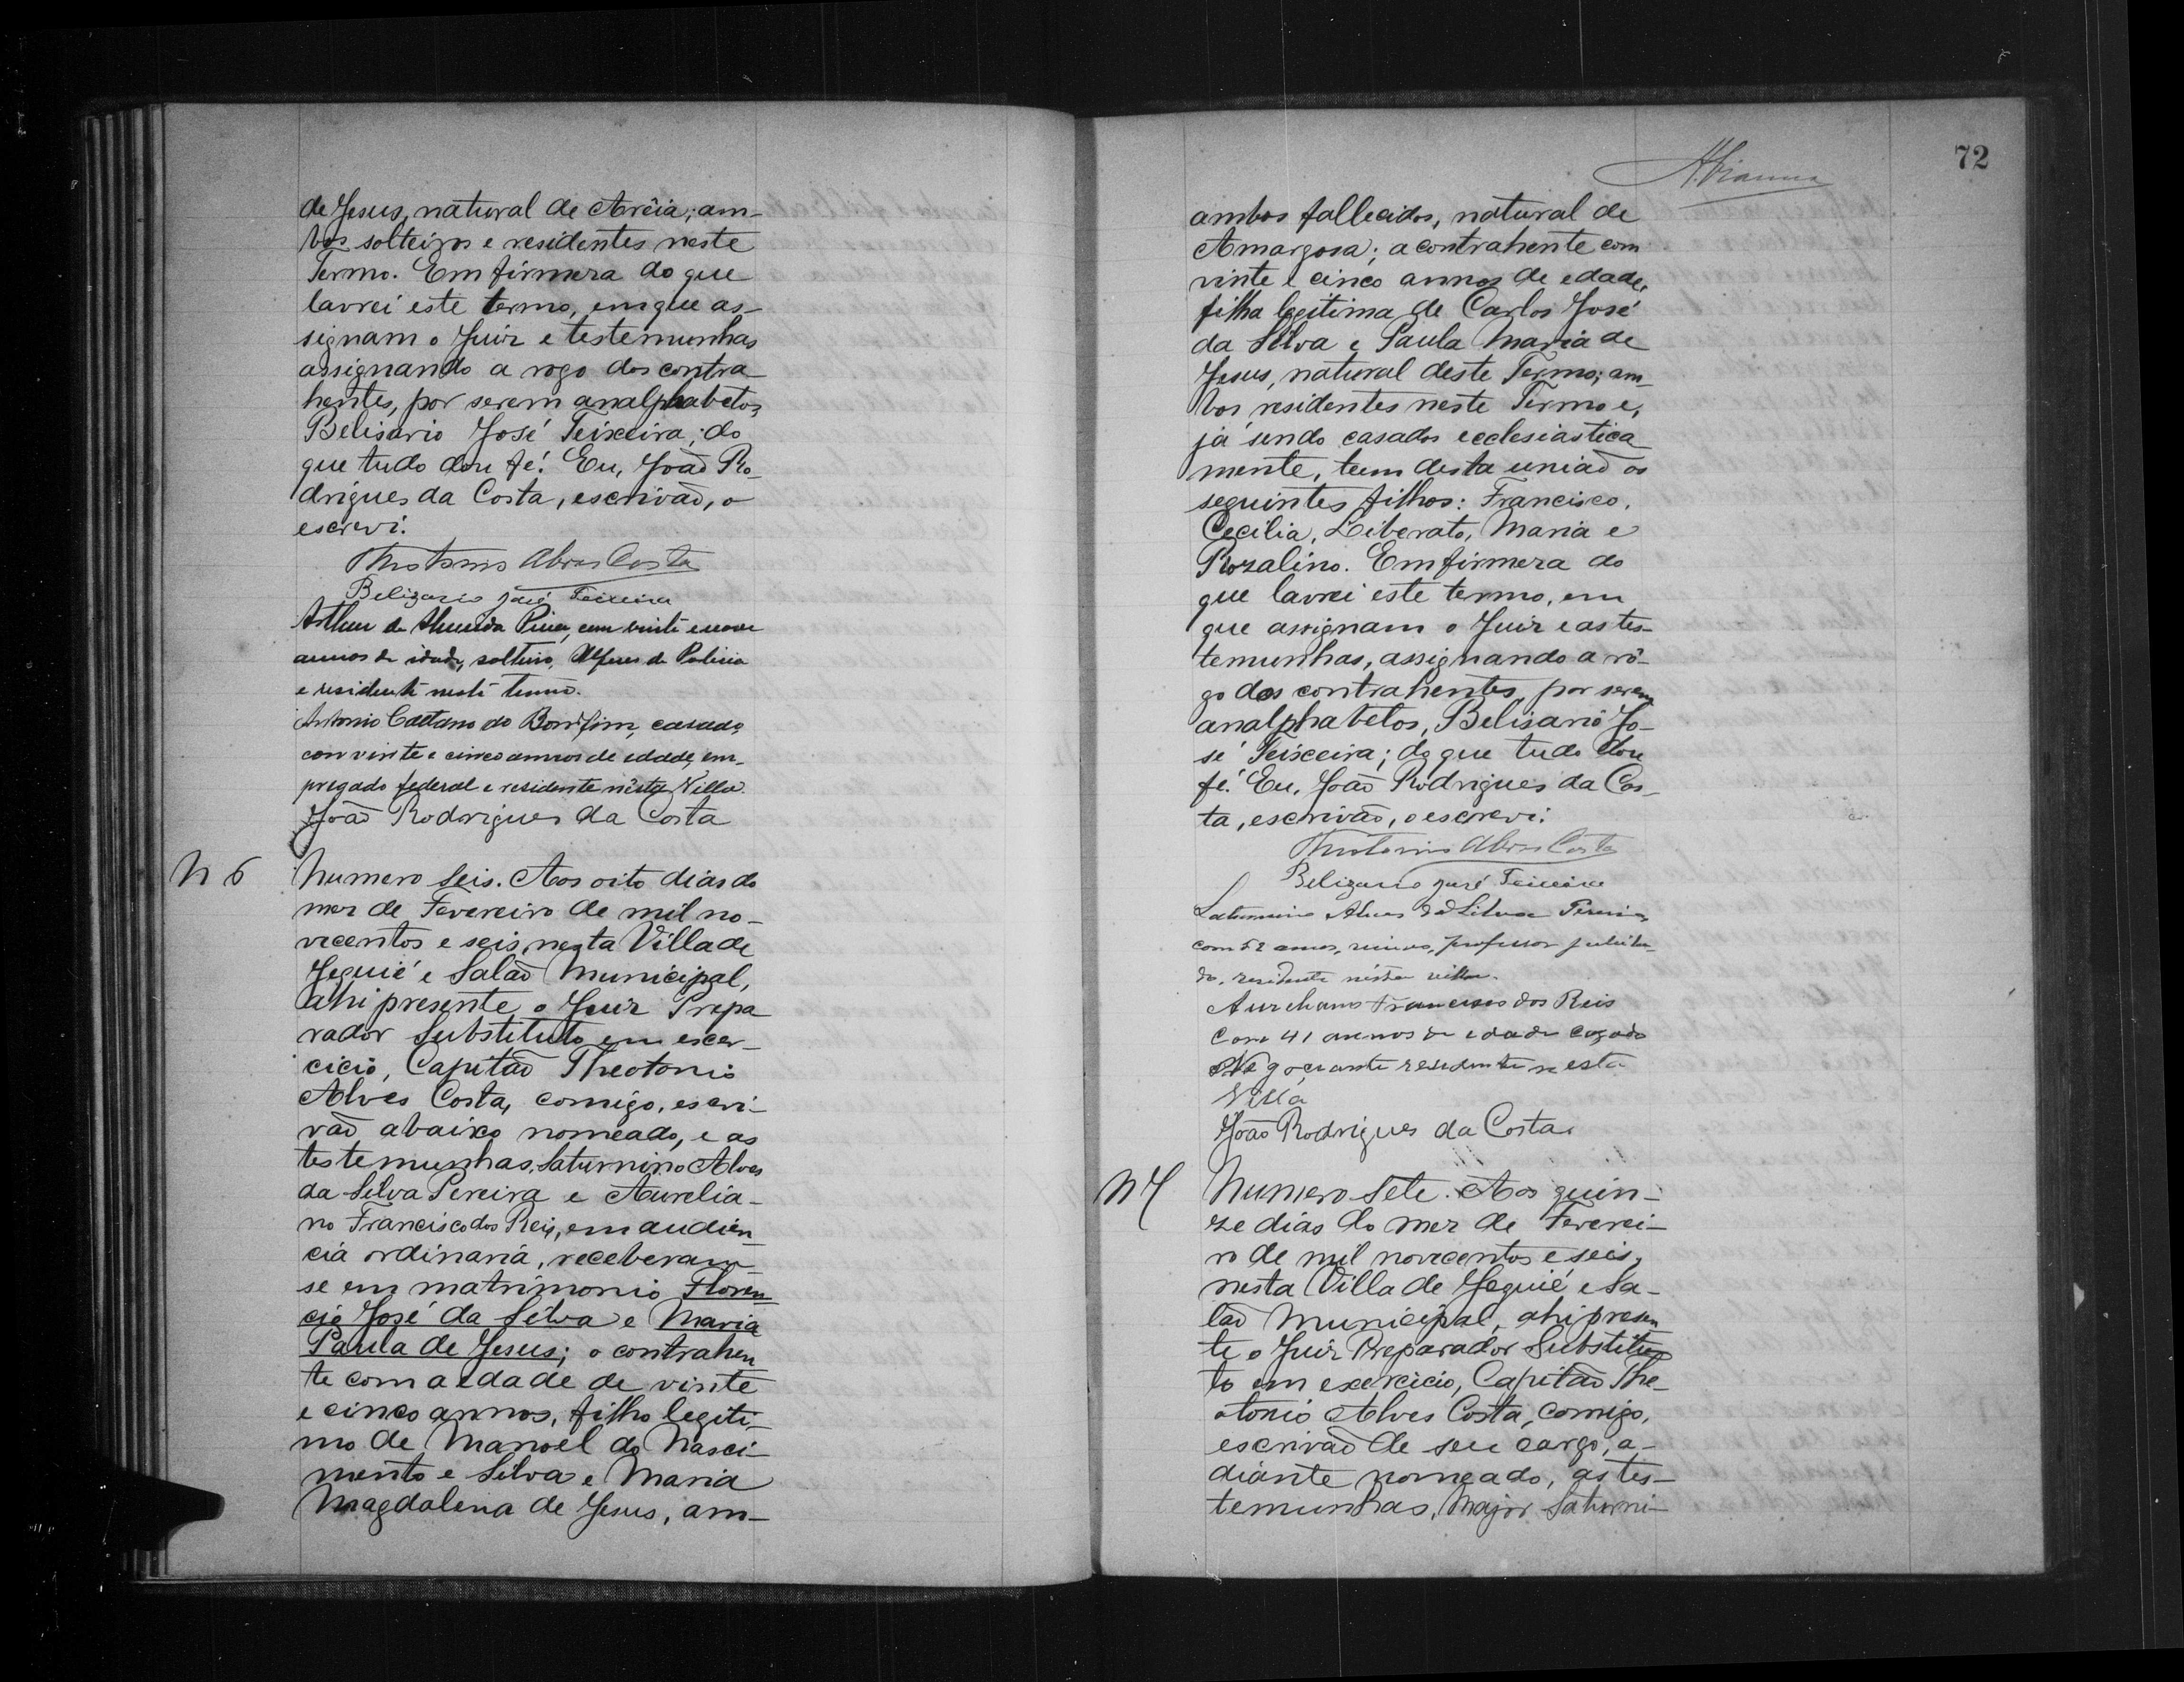 de Jesus, natural de Arêia; am-
bos solteiros e residentes neste
Termo. Em firmeza do que
lavrei este termo, em que as-
signam o Juiz e testemunhas
assignando a rogo dos contra-
hentes, por serem analphabetos,
Belisario José Teixeira; do
que tudo dou fé. Eu, João Ro-
drigues da Costa, escrivão, o
escrevi.
Theotonio Alves Costa
Belizario José Teixeira
Arthur de Almeida com vinte e nove
annos de idade, solteiro, Alferes de Policia
e residente neste termo.
Antonio Caetano do Bomfim, casado,
com vinte e cinco annos de edade, em-
pregado federal e residente nésta Villa.
João Rodrigues da Costa
N 6
Numero seis. Aos oito dias do
mez de Fevereiro de mil no-
vecentos e seis, nesta Villa de
Jequié e Salão Municipal,
ahi presente o Juiz Prepa
rador Substituto em exer-
cicio, Capitão Theotonio
Alves Costa, comigo, escri-
vão abaixo nomeado, e as
testemunhas, Saturnino Alves
da Silva Pereira e Aurelia-
no Francisco dos Reis, em audien
cia ordinaria, receberam-
se em matrimonio Floren
cio José da Silva e Maria
Paula de Jesus; o contrahen
te com a edade de vinte
e cinco annos, filho legiti-
mo de Manoel do Nasci-
mento e Silva e Maria
Magdalena de Jesus, am-
72
A. Vianna
ambos fallecidos, natural de
Amargosa; a contrahente com
vinte e cinco annos de edade,
filha legitima de Carlos José
da Silva e Paula Maria de
Jesus, natural deste Termo; am-
bos residentes neste Termo e,
já sendo casados ecclesiastica
mente, teem desta união os
seguintes filhos: Francisco,
Cecilia, Liberato, Maria e
Rozalino. Em firmeza do
que lavrei este termo, em
que assignam o Juiz e as tes-
temunhas, assignando a rô-
go dos contrahentes, por serem
analphabetos, Belisario Jo-
sé Teixeira; do que tudo dou
fé. Eu, João Rodrigues da Cos-
ta, escrivão, o escrevi.
Theotonio Alves Costa
Belizario José Teixeira
Saturnino Alves da Silva Pereira,
com 52 annos, viuvo, professor jubila-
do, residente nésta villa.
Aureliano Francisco dos Reis
Com 41 annos de edade cazado
Negociante residente nesta
Villa
João Rodrigues da Costa.
N 7
Numero Sete. Aos quin-
ze dias do mez de Feverei-
ro de mil novecentos e seis,
nesta Villa de Jequié e Sa-
lão Municipal, ahi presen
te o Juiz Preparador Substitu
to em exercicio, Capitão The-
otonio Alves Costa, comigo,
escrivão de seu cargo, a-
diante nomeado, as tes-
temunhas, Major Saturni-